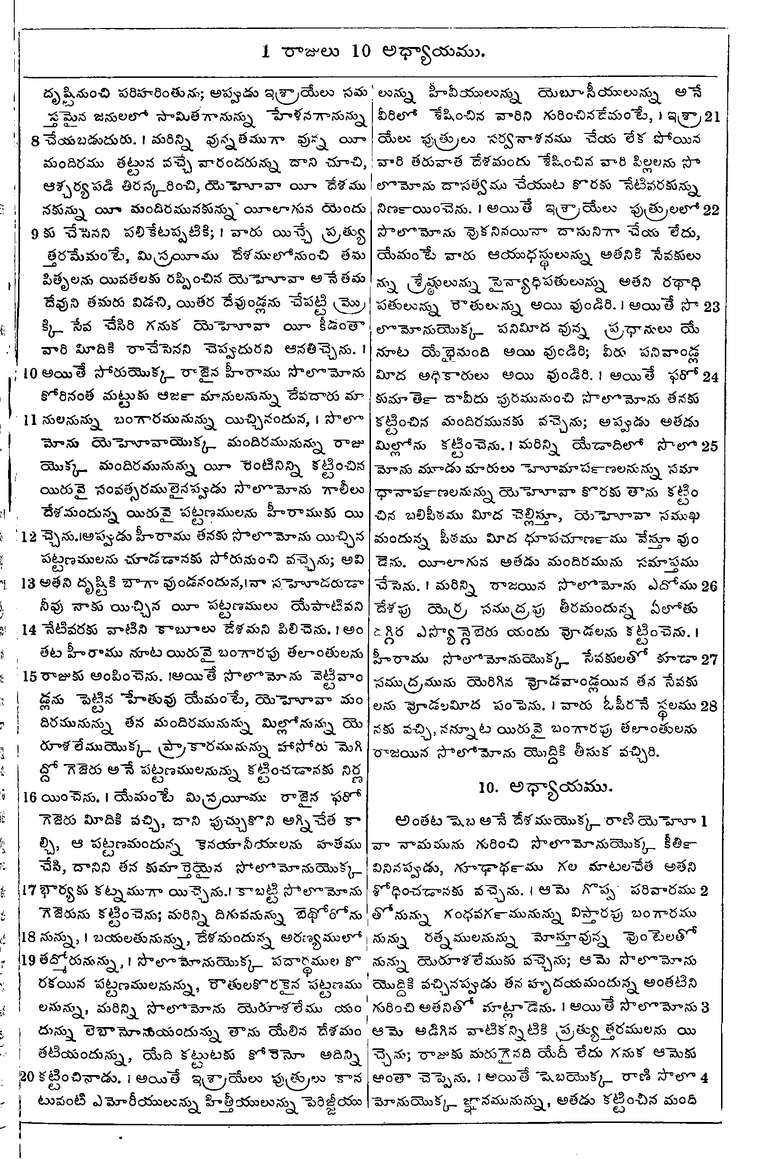 1 రాజులు 10 అధ్యాయము.
దృష్టినుంచి పరిహరింతును; అప్పుడు ఇశ్రాయేలు సమ
స్తమైన జనులలో సామితగానున్ను హేళనగానున్ను
8 చేయబడుదురు. । మరిన్ని వున్నతముగా వున్న యీ
మందిరము తట్టున వచ్చే వారందరున్ను దాని చూచి,
ఆశ్చర్యపడి తిరస్కరించి, యెహోవా యీ దేశము
నకున్ను యీ మందిరమునకున్ను యీలాగున యెందు
9 కు చేసెనని పలికేటప్పటికి; । వారు యిచ్చే ప్రత్యు
త్తరమేమంటే, మిస్రయీము దేశములోనుంచి తమ
పితృలను యివతలకు రప్పించిన యెహోవా అనే తమ
దేవుని తమరు విడచి, యితర దేవుండ్లను చేపట్టి మ్రొ
క్కి సేవ చేసిరి గనుక యెహోవా యీ కీడంతా
వారి మీదికి రాచేసెనని చెప్పుదురని ఆనతిచ్చెను. ।
10 అయితే సోరుయొక్క రాజైన హీరాము సొలొమోను
కోరినంత మట్టుకు ఆర్జా మానులనున్ను దేవదారు మా
11 నులనున్ను బంగారమునున్ను యిచ్చినందున, । సొలొ
మోను యెహోవాయొక్క మందిరమునున్ను రాజు
యొక్క మందిరమునున్ను యీ రెంటినిన్ని కట్టించిన
యిరువై సంవత్సరములైనప్పుడు సొలొమోను గాలీలు
దేశమందున్న యిరువై పట్టణములను హీరాముకు యి
12 చ్చెను.।అప్పుడు హీరాము తనకు సొలొమోను యిచ్చిన
పట్టణములను చూడడానకు సోరునుంచి వచ్చెను; అవి
13 అతని దృష్టికి బాగా వుండనందున,।నా సహోదరుడా
నీవు నాకు యిచ్చిన యీ పట్టణములు యేపాటివని
14 నేటివరకు వాటిని కాబూలు దేశమని పిలిచెను. । అం
తట హీరాము నూట యిరువై బంగారపు తలాంతులను
15 రాజుకు అంపించెను. ।అయితే సొలొమోను వెట్టివాం
డ్లను పెట్టిన హేతువు యేమంటే, యెహోవా మం
దిరమునున్ను తన మందిరమునున్ను మిల్లోనున్ను యె
రూశలేముయొక్క ప్రాకారమునున్ను హాసోరు మెగి
ద్దో గెజెరు అనే పట్టణములనున్ను కట్టించడానకు నిర్ణ
16 యించెను. । యేమంటే మిస్రయీము రాజైన ఫరో
గెజెరు మీదికి వచ్చి, దాని పుచ్చుకొని అగ్నిచేత కా
ల్చి, ఆ పట్టణమందున్న కెనయానీయులను హతము
చేసి, దానిని తన కుమార్తెయైన సొలొమోనుయొక్క
17 భార్యకు కట్నముగా యిచ్చెను.। కాబట్టి సొలొమోను
గెజెరును కట్టించెను; మరిన్ని దిగువనున్ను బెథోరోను
18 నున్ను, । బయలతునున్ను, దేశమందున్న అరణ్యములో
19 తద్మోరునున్ను, । సొలొమోనుయొక్క పదార్థముల కొ
రకయిన పట్టణములనున్ను, రౌతులకొరకైన పట్టణము
లనున్ను, మరిన్ని సొలొమోను యెరూశలేము యం
దున్ను లెబానోనుయందున్ను తాను యేలిన దేశమం
తటియందున్ను, యేది కట్టుటకు కోరెనో అదిన్ని
20 కట్టించినాడు. । అయితే ఇశ్రాయేలు పుత్రులు కాన
టువంటి ఎమోరీయులున్ను హిత్తీయులున్ను పెరిజ్జీయు
లున్ను హీవీయులున్ను యెబూసీయులున్ను అనే
వీరిలో శేషించిన వారిని గురించినదేమంటే, । ఇశ్రా 21
యేలు పుత్రులు సర్వనాశనము చేయ లేక పోయిన
వారి తరువాత దేశమందు శేషించిన వారి పిల్లలను సొ
లొమోను దాసత్వము చేయుట కొరకు నేటివరకున్ను
నిర్ణయించెను. । అయితే ఇశ్రాయేలు పుత్రులలో 22
సొలొమోను వొకనినయినా దాసునిగా చేయ లేదు,
యేమంటే వారు ఆయుధస్థులున్ను అతనికి సేవకులు
న్ను శ్రేష్ఠులున్ను సైన్యాధిపతులున్ను అతని రథాధి
పతులున్ను రౌతులున్ను అయి వుండిరి. । అయితే సొ 23
లొమోనుయొక్క పనిమీద వున్న ప్రధానులు యే
నూట యేభైమంది అయి వుండిరి; వీరు పనివాండ్ల
మీద అధికారులు అయి వుండిరి. । అయితే ఫరో 24
కుమార్తె దావీదు పురమునుంచి సొలొమోను తనకు
కట్టించిన మందిరమునకు వచ్చెను; అప్పుడు అతడు
మిల్లోను కట్టించెను. । మరిన్ని యేడాదిలో సొలొ 25
మోను మూడు మారులు హోమార్పణలనున్ను సమా
ధానార్పణలనున్ను యెహోవా కొరకు తాను కట్టిం
చిన బలిపీఠము మీద చెల్లిస్తూ, యెహోవా సముఖ
మందున్న పీఠము మీద ధూపచూర్ణము వేస్తూ వుం
డెను. యీలాగున అతడు మందిరమును సమాప్తము
చేసెను. । మరిన్ని రాజయిన సొలొమోను ఎదోము 26
దేశపు యెర్ర సముద్రపు తీరమందున్న ఏలోతు
దగ్గిర ఎస్యోన్గెబెరు యందు వోడలను కట్టించెను. ।
హీరాము సొలొమోనుయొక్క సేవకులతో కూడా 27
సముద్రమును యెరిగిన వోడవాండ్లయిన తన సేవకు
లను వోడలమీద పంపెను. । వారు ఓపీరనే స్థలము 28
నకు వచ్చి, నన్నూట యిరువై బంగారపు తలాంతులను
రాజయిన సొలొమోను యొద్దికి తీసుక వచ్చిరి.
10. అధ్యాయము.
అంతట షెబ అనే దేశముయొక్క రాణి యెహో 1
వా నామమును గురించి సొలొమోనుయొక్క కీర్తి
వినినప్పుడు, గూఢార్థము గల మాటలచేత అతని
శోధించడానకు వచ్చెను. । ఆమె గొప్ప పరివారము 2
తోనున్ను గంధవర్గమునున్ను విస్తారపు బంగారము
నున్ను రత్నములనున్ను మోస్తూవున్న వొంటెలతో
నున్ను యెరూశలేముకు వచ్చెను; ఆమె సొలొమోను
యొద్దికి వచ్చినప్పుడు తన హృదయమందున్న అంతటిని
గురించి అతనితో మాట్లాడెను. । అయితే సొలొమోను 3
ఆమె అడిగిన వాటికన్నిటికి ప్రత్యుత్తరములను యి
చ్చెను; రాజుకు మరుగైనది యేదీ లేదు గనుక ఆమెకు
అంతా చెప్పెను. । అయితే షెబయొక్క రాణి సొలొ 4
మోనుయొక్క జ్ఞానమునున్ను, అతడు కట్టించిన మంది